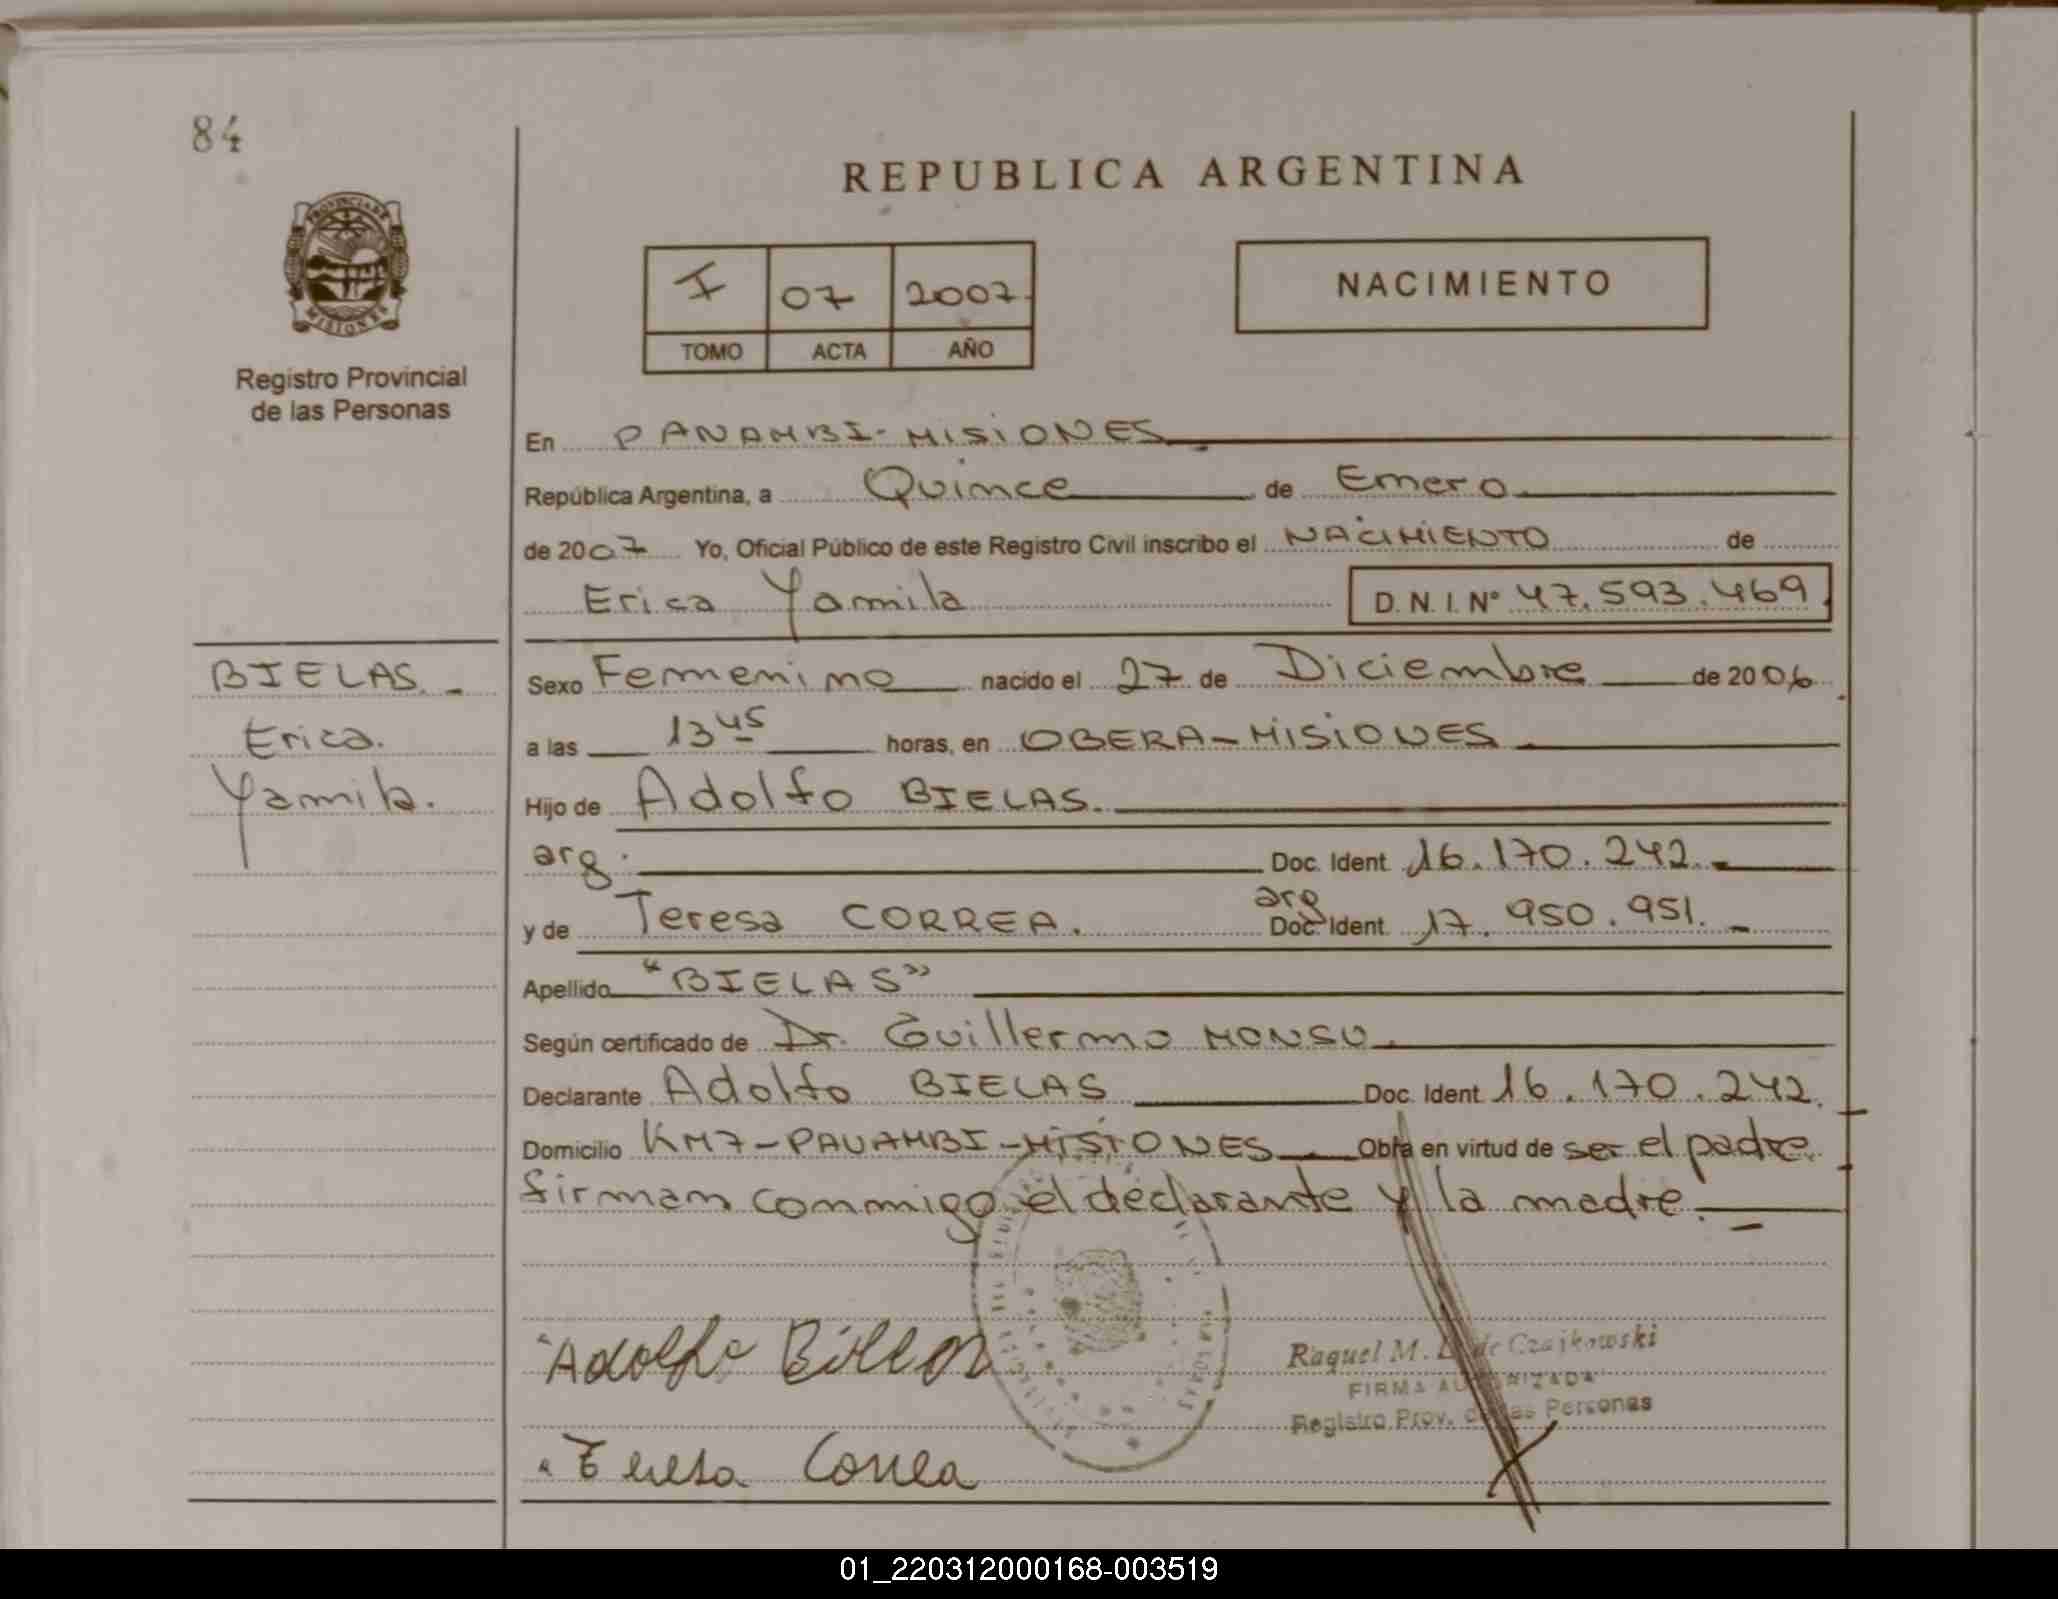 84
REPUBLICA ARGENTINA
PROVINCIA DE
MISIONES
Registro Provincial
de las Personas
I 07 2007
TOMO ACTA AÑO
NACIMIENTO
En PANAMBI-MISIONES
República Argentina, a Quince de Enero
de 2007 Yo, Oficial Público de este Registro Civil inscribo el NACIMIENTO de
Erica Yamila D. N. I. Nº 47.593.469
BIELAS
Erica.
Yamila.
Sexo Femenino nacido el 27 de Diciembre de 2006
a las 13 45 horas, en OBERA-MISIONES
Hijo de Adolfo BIELAS.
arg. Doc. Ident. 16.170.242.
y de Teresa CORREA. arg Doc. Ident. 17.950.951.
Apellido "BIELAS"
Según certificado de Dr. Guillermo MONSU.
Declarante Adolfo BIELAS Doc. Ident. 16.170.242.
Domicilio KM7-PANAMBI-MISIONES Obra en virtud de ser el padre.
firman conmigo el declarante y la madre.
Adolfo
Teresa Correa
Raquel M. de Czajkowski
FIRMA AUTORIZADA
Registro Prov. de las Personas
01_220312000168-003519